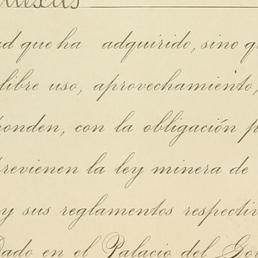 ad que ha adquirido, sino q
libre uso, aprovechamiento,
ponden, con la obligación p
previenen la ley minera de
y sus reglamentos respectiv
Dado en el Palacio del Go